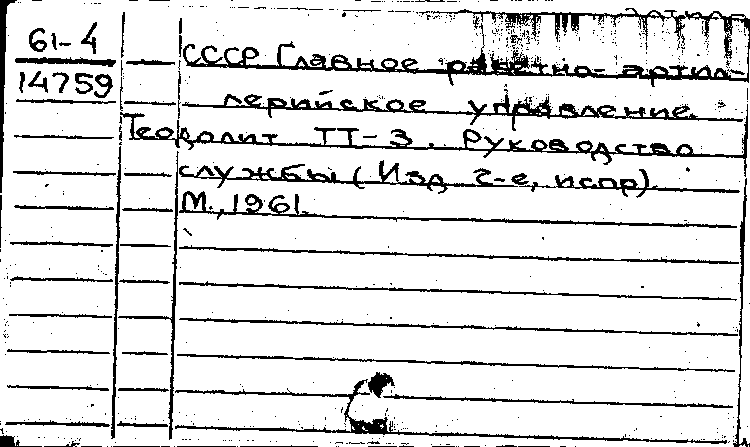 61-4
14759
СССР Главное ракетно-артил-
лерийское управление.
Теодолит ТТ-3. Руководство
службы (Изд 2-е, испр).
М., 1961.